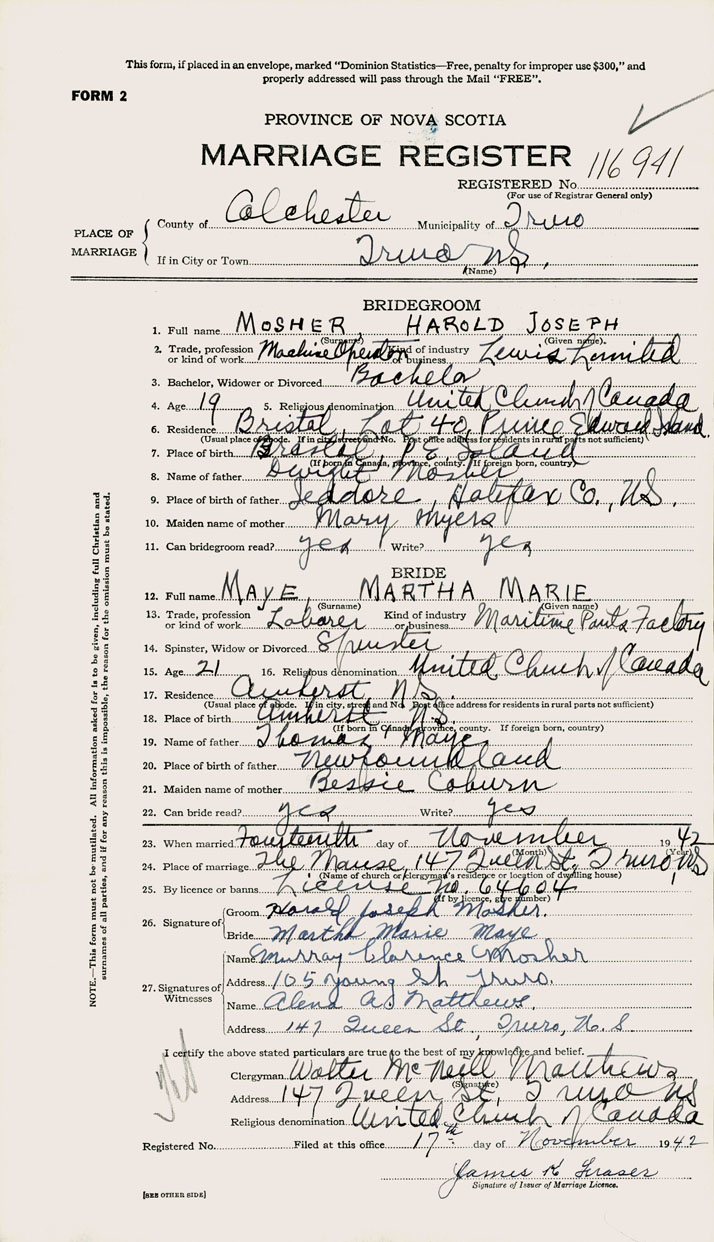 This form, if placed in an envelope, marked "Dominion Statistics—Free, penalty for improper use $300," and
properly addressed will pass through the Mail "FREE".
FORM 2
PROVINCE OF NOVA SCOTIA
MARRIAGE REGISTER
REGISTERED No. 116941
(For use of Registrar General only)
PLACE OF MARRIAGE
County of Colchester Municipality of Truro
If in City or Town Truro N.S.
(Name)
BRIDEGROOM
1. Full name MOSHER HAROLD JOSEPH
(Surname) (Given name)
2. Trade, profession or kind of work Machine Operator Kind of industry or business Lewis Limited
3. Bachelor, Widower or Divorced Bachelor
4. Age 19 5. Religious denomination United Church of Canada
6. Residence Bristol, Lot 40, Prince Edward Island.
(Usual place of abode. If in city, street and No. Post office address for residents in rural parts not sufficient)
7. Place of birth Bristol, P.E. Island
(If born in Canada, province, county. If foreign born, country)
8. Name of father Dwight Mosher
9. Place of father Jeddore, Halifax Co., N.S.
10. Maiden name of mother Mary Myers
11. Can bridegroom read? yes Write? yes
BRIDE
12. Full name MAYE, MARTHA MARIE
(Surname) (Given name)
13. Trade, profession or kind of work Laborer Kind of industry or business Maritime Pants Factory
14. Spinster, Widow or Divorced Spinster
15. Age 21 16. Religious denomination United Church of Canada
17. Residence Amherst, N.S.
(Usual place of abode. If in city, street and No. Post office address for residents in rural parts not sufficient)
18. Place of birth Amherst N.S.
(If born in Canada, province, county. If foreign born, country)
19. Name of father Thomas Maye
20. Place of birth of father Newfoundland
21. Maiden name of mother Bessie Coburn
22. Can bride read? yes Write? yes
23. When married Fourteenth day of November 1942
(Month) (Year)
24. Place of marriage The Manse, 147 Queen St., Truro, N.S.
(Name of church or clergyman's residence or location of dwelling house)
25. By licence or banns License No. 64604
(If by licence, give number)
26. Signature of
Groom Harold Joseph Mosher.
Bride Martha Marie Maye
27. Signatures of Witnesses
Name Murray Clarence Mosher
Address 105 Young St. Truro.
Name Alena A. Matthews.
Address 147 Queen St., Truro, N.S.
I certify the above stated particulars are true to the best of my knowledge and belief.
Clergyman Walter McNeill Matthews
(Signature)
Address 147 Queen St., Truro NS
Religious denomination United Church of Canada
Registered No. Filed at this office 17th day of November 1942
James K Fraser
Signature of Issuer of Marriage Licence.
[SEE OTHER SIDE]
NOTE.—This form must not be mutilated. All information asked for is to be given, including full Christian and
surnames of all parties, and if for any reason this is impossible, the reason for the omission must be stated.